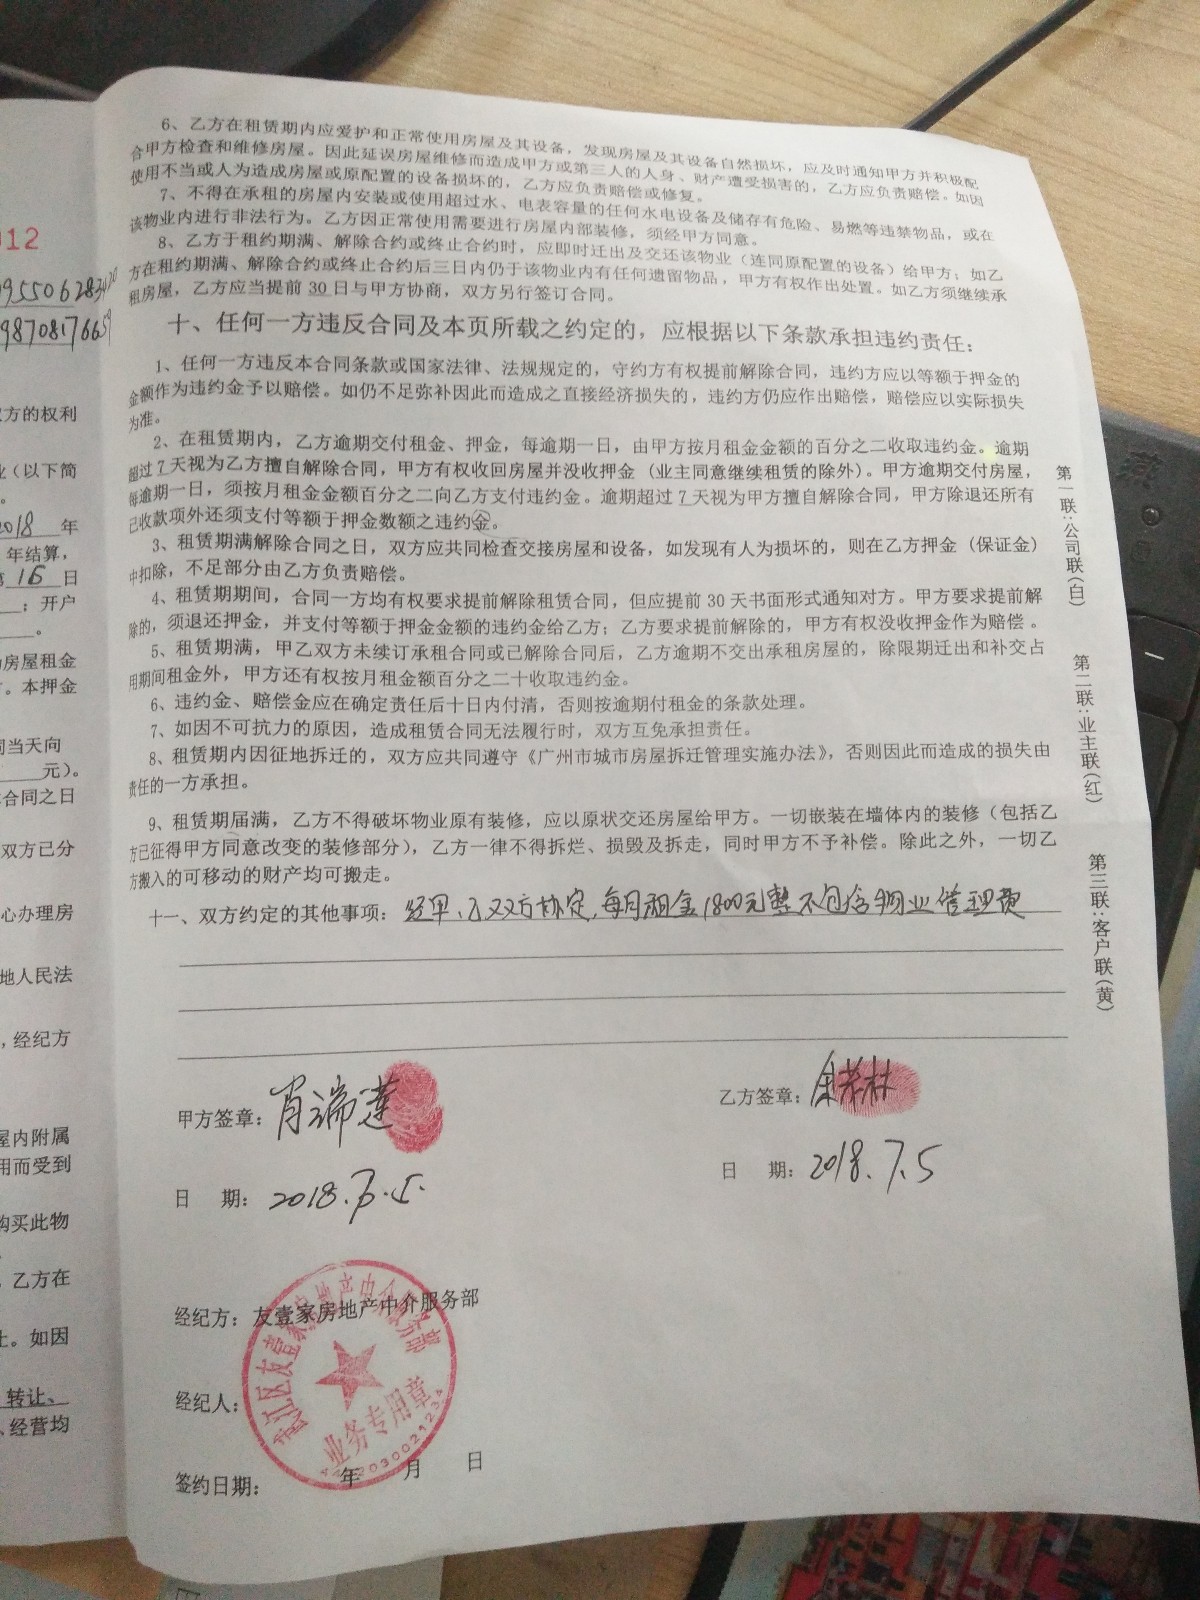 012
年
年结算，
日
；开户
。
元)。
6、乙方在租赁期内应爱护和正常使用房屋及其设备，发现房屋及其设备自然损坏，应及时通知甲方并积极配
合甲方检查和维修房屋。因此延误房屋维修而造成甲方或第三人的人身、财产遭受损害的，乙方应负责赔偿。如因
使用不当或人为造成房屋或原配置的设备损坏的，乙方应负责赔偿或修复。
7、不得在承租的房屋内安装或使用超过水、电表容量的任何水电设备及储存有危险、易燃等违禁物品，或在
该物业内进行非法行为。乙方因正常使用需要进行房屋内部装修，须经甲方同意。
8、乙方于租约期满、解除合约或终止合约时，应即时迁出及交还该物业（连同原配置的设备）给甲方；如乙
方在租约期满、解除合约或终止合约后三日内仍于该物业内有任何遗留物品，甲方有权作出处置。如乙方须继续承
租房屋，乙方应当提前 30 日与甲方协商，双方另行签订合同。
十、任何一方违反合同及本页所载之约定的，应根据以下条款承担违约责任：
1、任何一方违反本合同条款或国家法律、法规规定的，守约方有权提前解除合同，违约方应以等额于押金的
金额作为违约金予以赔偿。如仍不足弥补因此而造成之直接经济损失的，违约方仍应作出赔偿，赔偿应以实际损失
为准。
2、在租赁期内，乙方逾期交付租金、押金，每逾期一日，由甲方按月租金金额的百分之二收取违约金。逾期
超过 7 天视为乙方擅自解除合同，甲方有权收回房屋并没收押金（业主同意继续租赁的除外）。甲方逾期交付房屋，
每逾期一日，须按月租金金额百分之二向乙方支付违约金。逾期超过 7 天视为甲方擅自解除合同，甲方除退还所有
已收款项外还须支付等额于押金数额之违约金。
3、租赁期满解除合同之日，双方应共同检查交接房屋和设备，如发现有人为损坏的，则在乙方押金（保证金）
中扣除，不足部分由乙方负责赔偿。
4、租赁期期间，合同一方均有权要求提前解除租赁合同，但应提前 30 天书面形式通知对方。甲方要求提前解
除的，须退还押金，并支付等额于押金金额的违约金给乙方；乙方要求提前解除的，甲方有权没收押金作为赔偿 。
5、租赁期满，甲乙双方未续订承租合同或已解除合同后，乙方逾期不交出承租房屋的，除限期迁出和补交占
用期间租金外，甲方还有权按月租金额百分之二十收取违约金。
6、违约金、赔偿金应在确定责任后十日内付清，否则按逾期付租金的条款处理。
7、如因不可抗力的原因，造成租赁合同无法履行时，双方互免承担责任。
8、租赁期内因征地拆迁的，双方应共同遵守《广州市城市房屋拆迁管理实施办法》，否则因此而造成的损失由
责任的一方承担。
9、租赁期届满，乙方不得破坏物业原有装修，应以原状交还房屋给甲方。一切嵌装在墙体内的装修（包括乙
方已征得甲方同意改变的装修部分），乙方一律不得拆烂、损毁及拆走，同时甲方不予补偿。除此之外，一切乙
方搬入的可移动的财产均可搬走。
十一、双方约定的其他事项：经甲、乙双方协定，每月租金1800元整不包含物业管理费
甲方签章：肖端莲
乙方签章：
日 期：2018.7.5.
日 期：2018.7.5
经纪方：友壹家房地产中介服务部
经纪人：
签约日期： 年 月 日
业务专用章
第一联：公司联(白)
第二联：业主联(红)
第三联：客户联(黄)
方的权利
（以下简
2018
16
房屋租金
。本押金
同当天向
合同之日
双方已分
心办理房
地人民法
，经纪方
屋内附属
用而受到
购买此物
，乙方在
。如因
转让、
、经营均